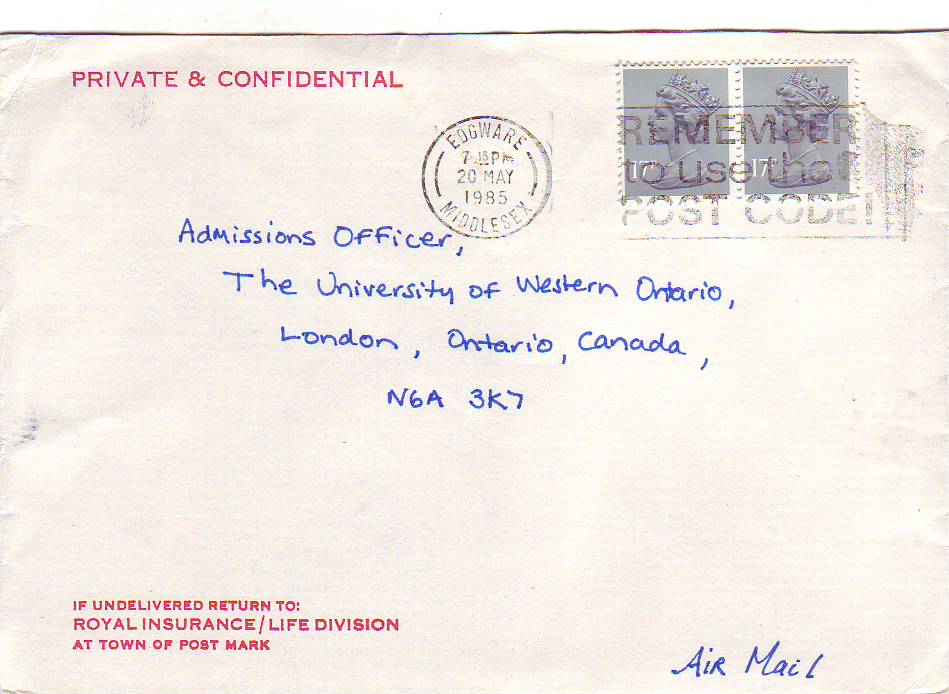 PRIVATE & CONFIDENTIAL
EDGWARE
7 15 PM
20 MAY
1985
MIDDLESEX
17
17
REMEMBER
to use the
POST CODE!
Admissions Officer,
The University of Western Ontario,
London, Ontario, Canada,
N6A 3K7
IF UNDELIVERED RETURN TO:
ROYAL INSURANCE/LIFE DIVISION
AT TOWN OF POST MARK
Air Mail